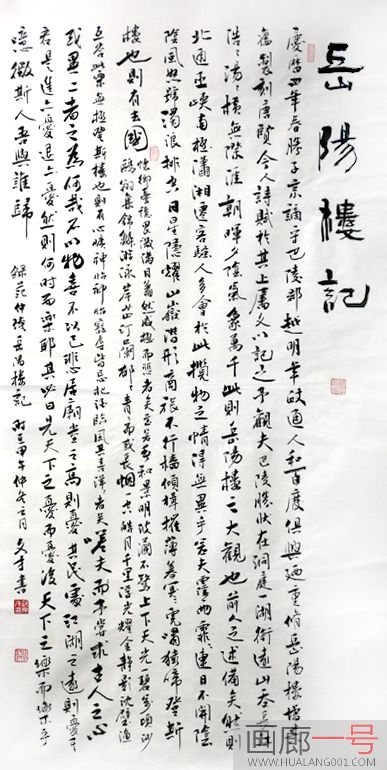 岳陽樓記
慶曆四年春滕子京謫守巴陵郡越明年政通人和百廢俱興廼重修岳陽樓增其
舊製刻唐賢今人詩賦於其上屬文以記之予觀夫巴陵勝狀在洞庭一湖銜遠山吞長江
浩浩湯湯橫無際涯朝暉夕陰氣象萬千此則岳陽樓之大觀也前人之述備矣然則
北通巫峽南極瀟湘遷客騷人多會於此覽物之情得無異乎若夫霪雨霏霏連日不開陰
陰風怒號濁浪排空日星隱燿山嶽潛形商旅不行檣傾楫摧薄暮冥冥虎嘯猿啼登斯
樓也則有去國
懷鄉憂讒畏譏滿目蕭然感極而悲者矣至若春和景明波瀾不驚上下天光一碧萬頃沙
鷗翔集錦鱗游泳岸芷汀蘭郁郁青青而或長煙一空皓月千里浮光耀金靜影沉璧漁
互答此樂無極登斯樓也則有心曠神怡把酒臨風其喜洋洋者矣嗟夫而予嘗求古人之心
或異二者之為何哉不以物喜不以己悲居廟堂之高則憂其民處江湖之遠則憂其
君是進亦憂退亦憂然則何時而樂耶其必曰先天下之憂而憂後天下之樂而樂乎
噫微斯人吾與誰歸
錄范仲淹岳陽樓記
時在甲午仲冬
文才書
画廊一号
WWW.HUALANG001.COM